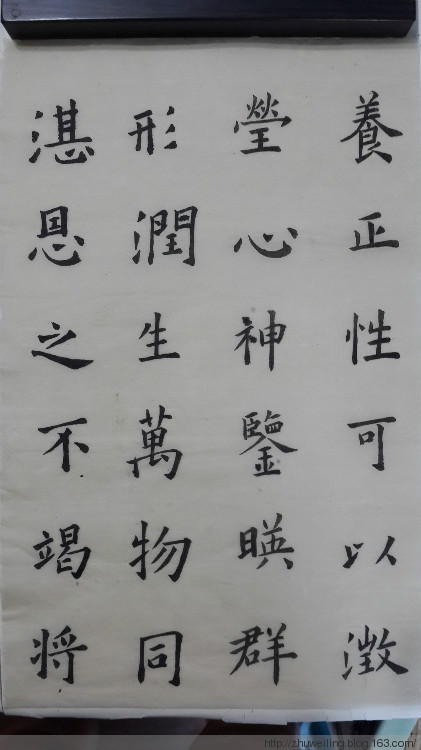 養正性可以澂
瑩心神鑒暎群
形潤生萬物同
湛恩之不竭将
http://zhuweiling.blog.163.com/